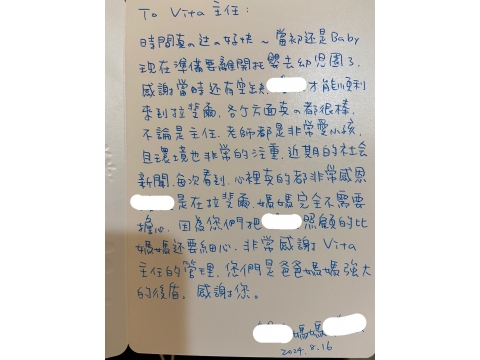 To Vita 主任:
時間真的過的好快~當初還是Baby
現在準備要離開托嬰去幼兒園了
感謝當時还有空缺 才能順利
來到拉斐爾,各個方面真的都很棒,
不論是主任,老師都是非常愛小孩,
且環境也非常的注重,近期的社会
新聞,每次看到,心裡真的都非常感恩
是在拉斐爾,媽媽完全不需要
擔心,因為您們把 照顧的比
媽媽還要細心,非常感謝Vita
主任的管理,您們是爸爸媽媽強大
的後盾。感謝您。
媽媽
2024.8.16